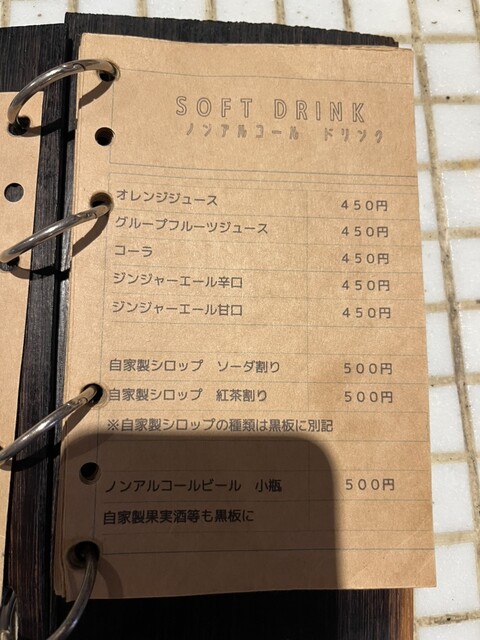 SOFT DRINK
ノンアルコール ドリンク
オレンジジュース 450円
グループフルーツジュース 450円
コーラ 450円
ジンジャーエール辛口 450円
ジンジャーエール甘口 450円
自家製シロップ ソーダ割り 500円
自家製シロップ 紅茶割り 500円
※自家製シロップの種類は黒板に別記
ノンアルコールビール 小瓶 500円
自家製果実酒等も黒板に